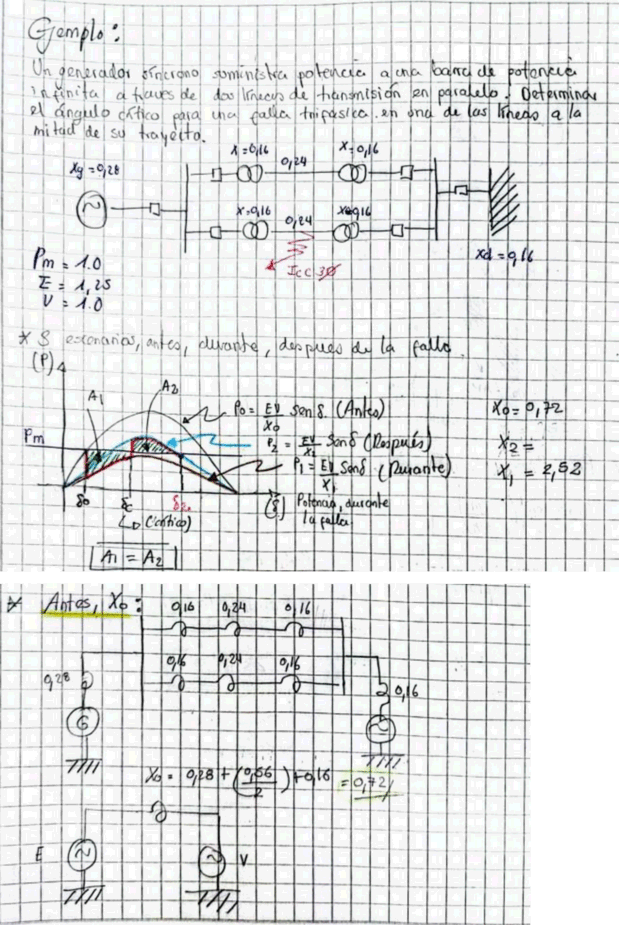 Ejemplo:
Un generador síncrono suministra potencia a una barra de potencia
infinita a traves de dos líneas de transmisión en paralelo. Determinar
el ángulo crítico para una falla trifásica en una de las líneas a la
mitad de su trayecto.
Xg=0,28
X=0,16
0,24
X=0,16
X=0,16
0,24
X=0,16
Icc 3Ø
Xd=0,16
Pm = 1.0
E = 1,25
V = 1.0
* 3 escenarios, antes, durante, despues de la falla.
(P)
A1
A2
Po = EV/X0 Senδ (Antes)
X0 = 0,72
Pm
P2 = EV/X2 Senδ (Después)
X2 =
P1 = EV/X1 Senδ (Durante)
X1 = 2,52
δ0
δc
δ2
(δ)
Potencia, durante
la falla
(crítico)
A1 = A2
* Antes, X0:
0,16 0,24 0,16
0,16 0,24 0,16
0,28
0,16
G
X0 = 0,28 + (0,56/2) + 0,16 = 0,72
E
V